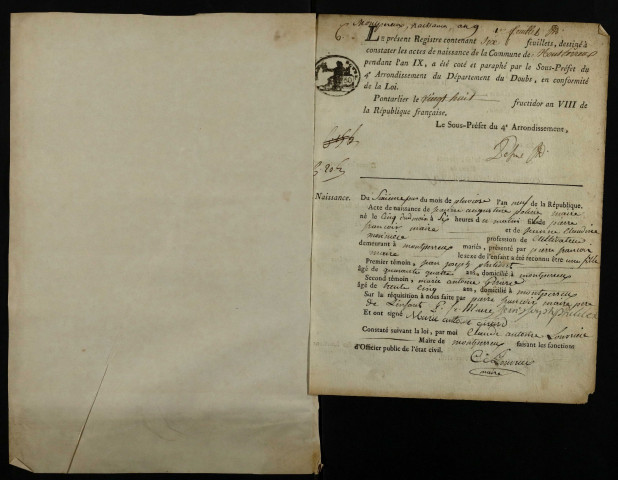 Montperreux, naissance, an 9 1er feuillet
Le présent Registre contenant six feuillets, destiné à
constater les actes de naissance de la Commune de Montperreux
pendant l'an IX, a été coté et paraphé par le Sous-Préfet du
4e Arrondissement du Département du Doubs, en conformité
de la Loi.
Pontarlier le vingt huit fructidor an VIII de
la République française.
Le Sous-Préfet du 4e Arrondissement,
Naissance.
Du mois de pluviose l'an neuf de la République.
Acte de naissance de augustine maire
né le cinq dudit mois à six heures du matin fille de pierre
francois maire et de jeanne claudine
profession de Cultivateur
demeurant à montperreux mariés, présenté par pierre francois
maire le sexe de l'enfant a été reconnu être une fille
Premier témoin, jean joseph
âgé de quarante quatre ans, domicilié à montperreux
Second témoin, marie antoine
âgé de trente cinq ans, domicilié à montperreux
Sur la réquisition à nous faite par pierre francois maire pere
de l'enfant P. f. Maire jean joseph
Et ont signé Marie antoine
Constaté suivant la loi, par moi Claude antoine
Maire de montperreux faisant les fonctions
d'Officier public de l'état civil.
maire